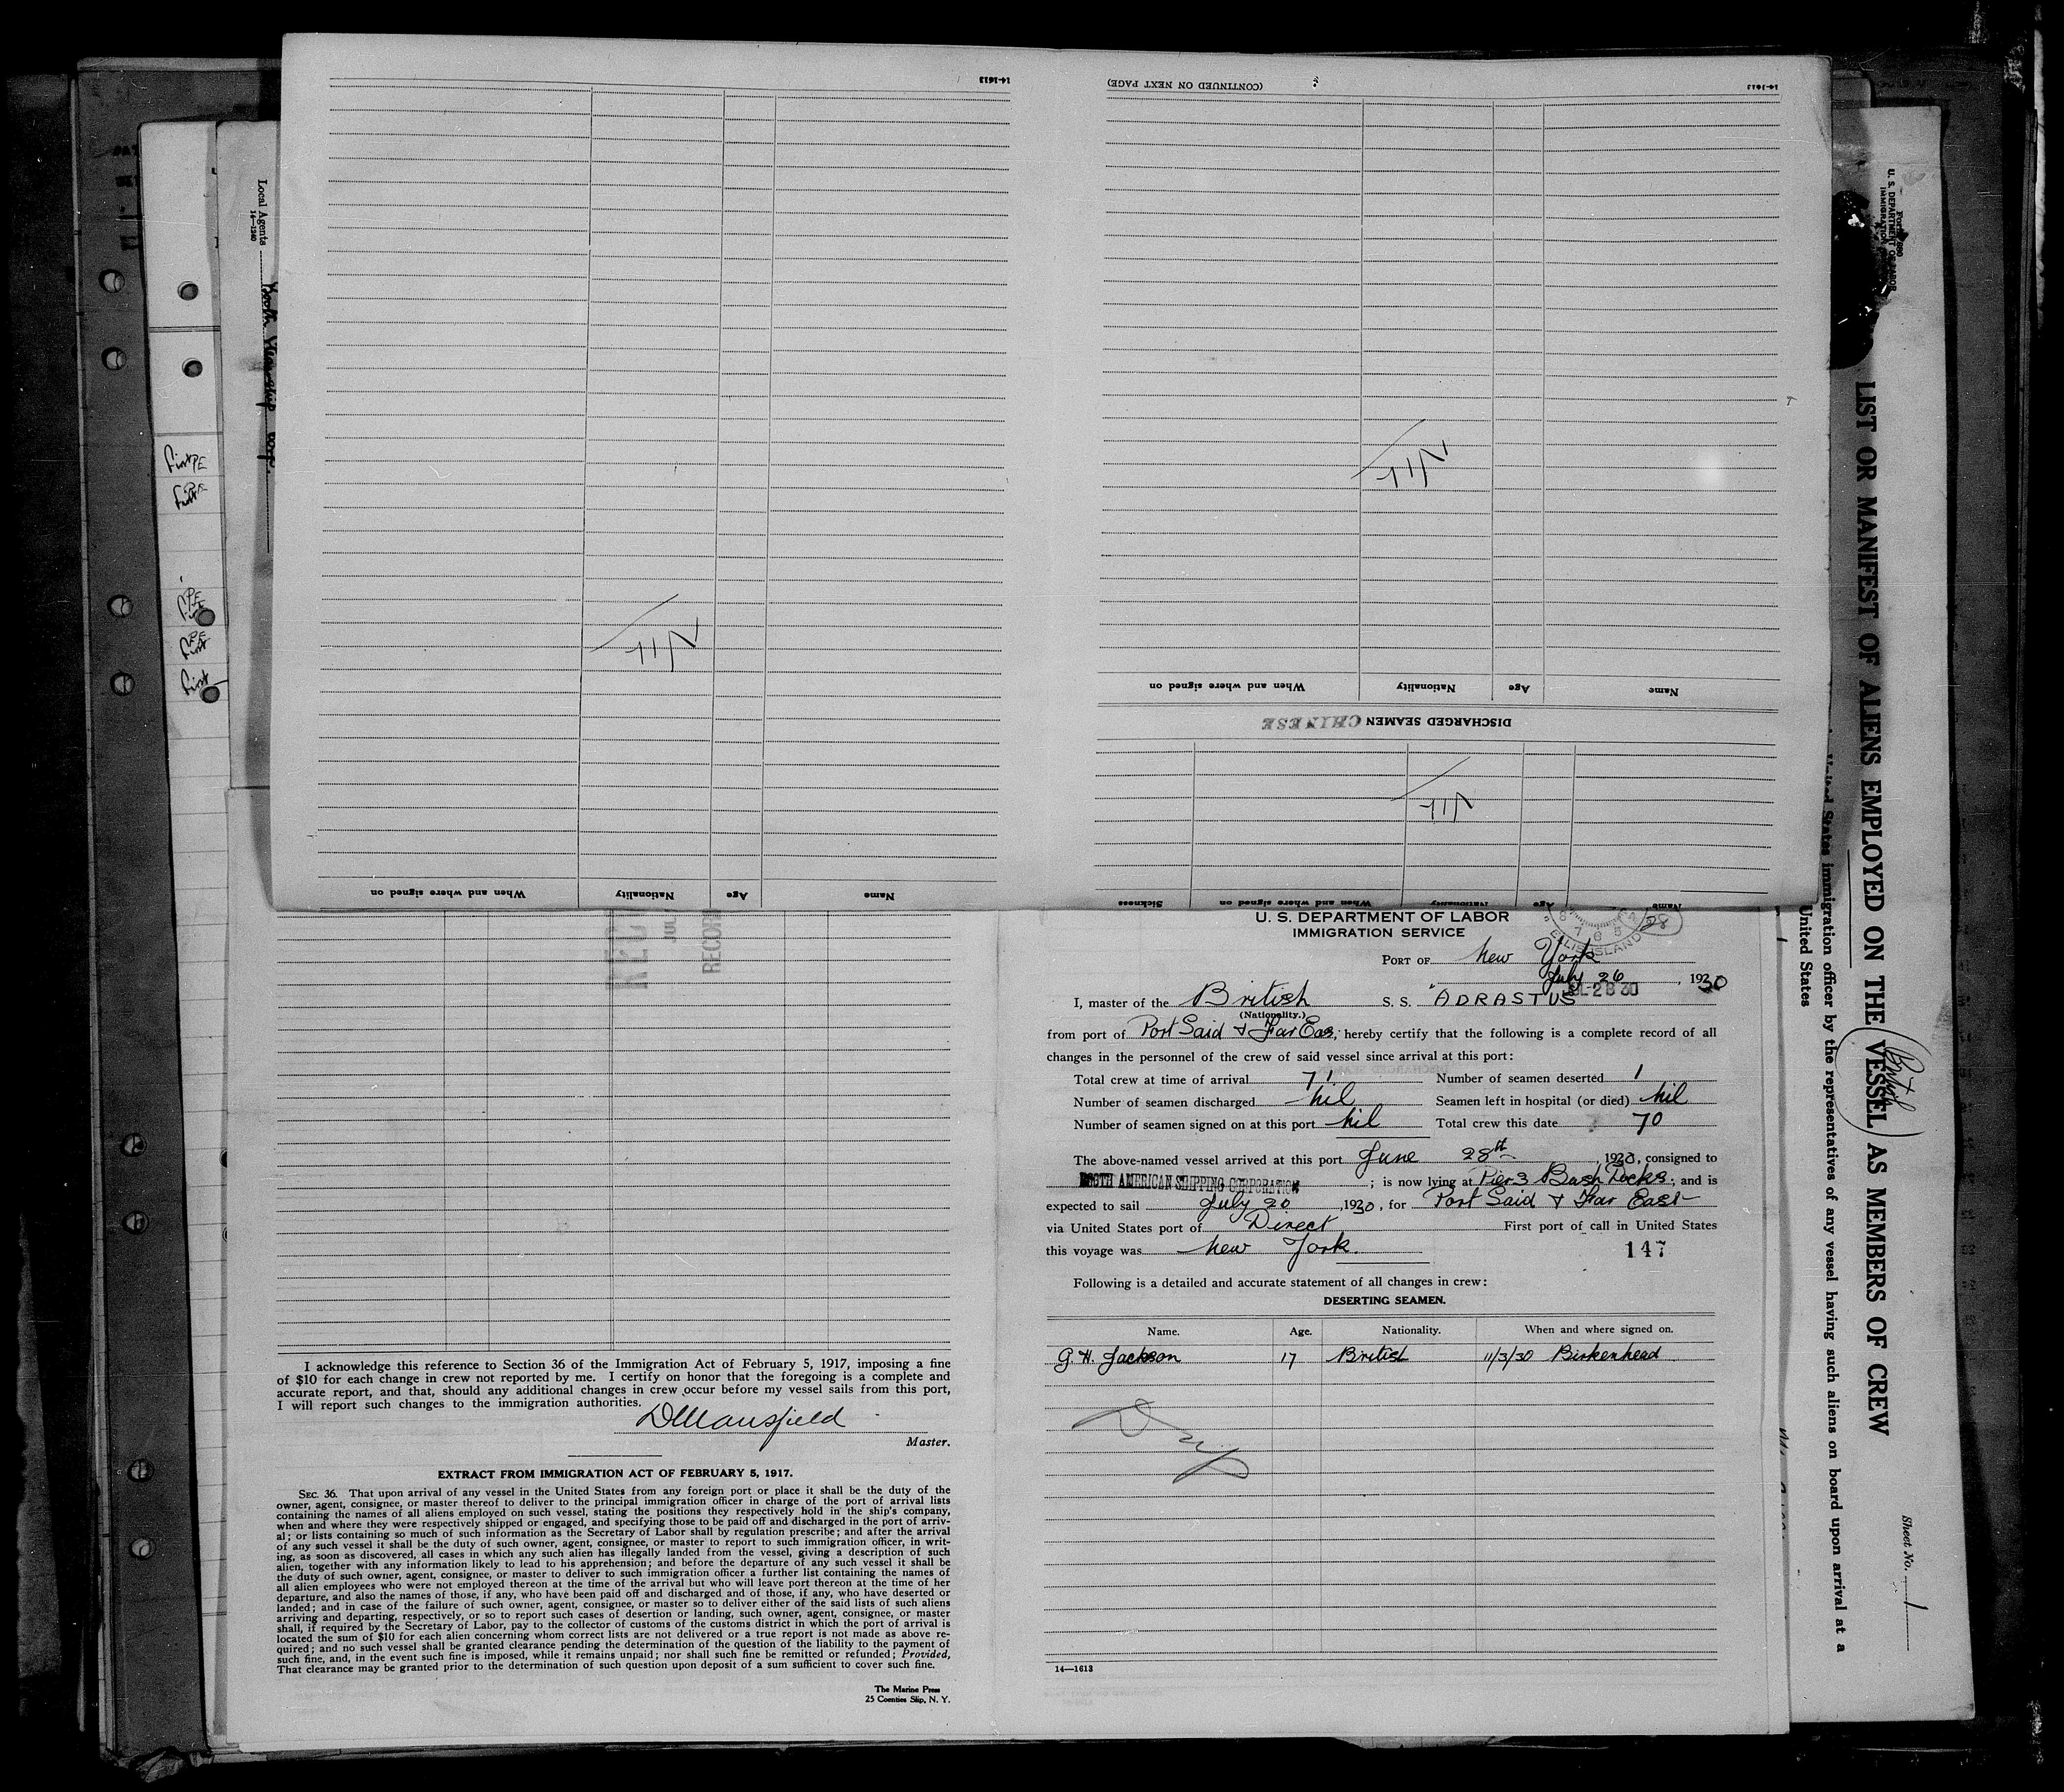 14-1613
(CONTINUED ON NEXT PAGE)
14-1613
Nil
Nil
When and where signed on
Nationality
Age
Name
DISCHARGED SEAMEN CHINESE
Nil
When and where signed on
Nationality
Age
Name
Sickness
When and where signed on
Nationality
Age
Name
Local Agents
14-1240
Booth Steamship Corp.
First PE
First PE
PE First
PE First
First
REC
JUL
RECOR
I acknowledge this reference to Section 36 of the Immigration Act of February 5, 1917, imposing a fine
of $10 for each change in crew not reported by me. I certify on honor that the foregoing is a complete and
accurate report, and that, should any additional changes in crew occur before my vessel sails from this port,
I will report such changes to the immigration authorities.
DMansfield
Master.
EXTRACT FROM IMMIGRATION ACT OF FEBRUARY 5, 1917.
SEC. 36. That upon arrival of any vessel in the United States from any foreign port or place it shall be the duty of the
owner, agent, consignee, or master thereof to deliver to the principal immigration officer in charge of the port of arrival lists
containing the names of all aliens employed on such vessel, stating the positions they respectively hold in the ship's company,
when and where they were respectively shipped or engaged, and specifying those to be paid off and discharged in the port of arriv-
al; or lists containing so much of such information as the Secretary of Labor shall by regulation prescribe; and after the arrival
of any such vessel it shall be the duty of such owner, agent, consignee, or master to report to such immigration officer, in writ-
ing, as soon as discovered, all cases in which any such alien has illegally landed from the vessel, giving a description of such
alien, together with any information likely to lead to his apprehension; and before the departure of any such vessel it shall be
the duty of such owner, agent, consignee, or master to deliver to such immigration officer a further list containing the names of
all alien employees who were not employed thereon at the time of the arrival but who will leave port thereon at the time of her
departure, and also the names of those, if any, who have been paid off and discharged and of those, if any, who have deserted or
landed; and in case of the failure of such owner, agent, consignee, or master so to deliver either of the said lists of such aliens
arriving and departing, respectively, or so to report such cases of desertion or landing, such owner, agent, consignee, or master
shall, if required by the Secretary of Labor, pay to the collector of customs of the customs district in which the port of arrival is
located the sum of $10 for each alien concerning whom correct lists are not delivered or a true report is not made as above re-
quired; and no such vessel shall be granted clearance pending the determination of the question of the liability to the payment of
such fine, and, in the event such fine is imposed, while it remains unpaid; nor shall such fine be remitted or refunded; Provided,
That clearance may be granted prior to the determination of such question upon deposit of a sum sufficient to cover such fine.
The Marine Press
25 Coenties Slip, N. Y.
U. S. DEPARTMENT OF LABOR
IMMIGRATION SERVICE
ELLIS ISLAND
28
PORT OF New York
July 26, 1930
JUL-28 30
I, master of the British S. S. "ADRASTUS"
(Nationality.)
from port of Port Said & Far Eas, hereby certify that the following is a complete record of all
changes in the personnel of the crew of said vessel since arrival at this port:
Total crew at time of arrival 71 Number of seamen deserted 1
Number of seamen discharged nil Seamen left in hospital (or died) nil
Number of seamen signed on at this port nil Total crew this date 70
The above-named vessel arrived at this port June 28th, 1930, consigned to
BOOTH AMERICAN SHIPPING CORPORATION; is now lying at Pier 3 Bush Docks; and is
expected to sail July 20, 1930, for Port Said & Far East
via United States port of Direct First port of call in United States
this voyage was New York.
147
Following is a detailed and accurate statement of all changes in crew:
DESERTING SEAMEN.
Name. Age. Nationality. When and where signed on.
G. H. Jackson 17 British 11/3/30 Birkenhead
14—1613
U. S. DEPARTMENT OF LABOR
IMMIGRATION
LIST OR MANIFEST OF ALIENS EMPLOYED ON THE VESSEL AS MEMBERS OF CREW
British
United States immigration officer by the representatives of any vessel having such aliens on board upon arrival at a
United States
Sheet No. 1